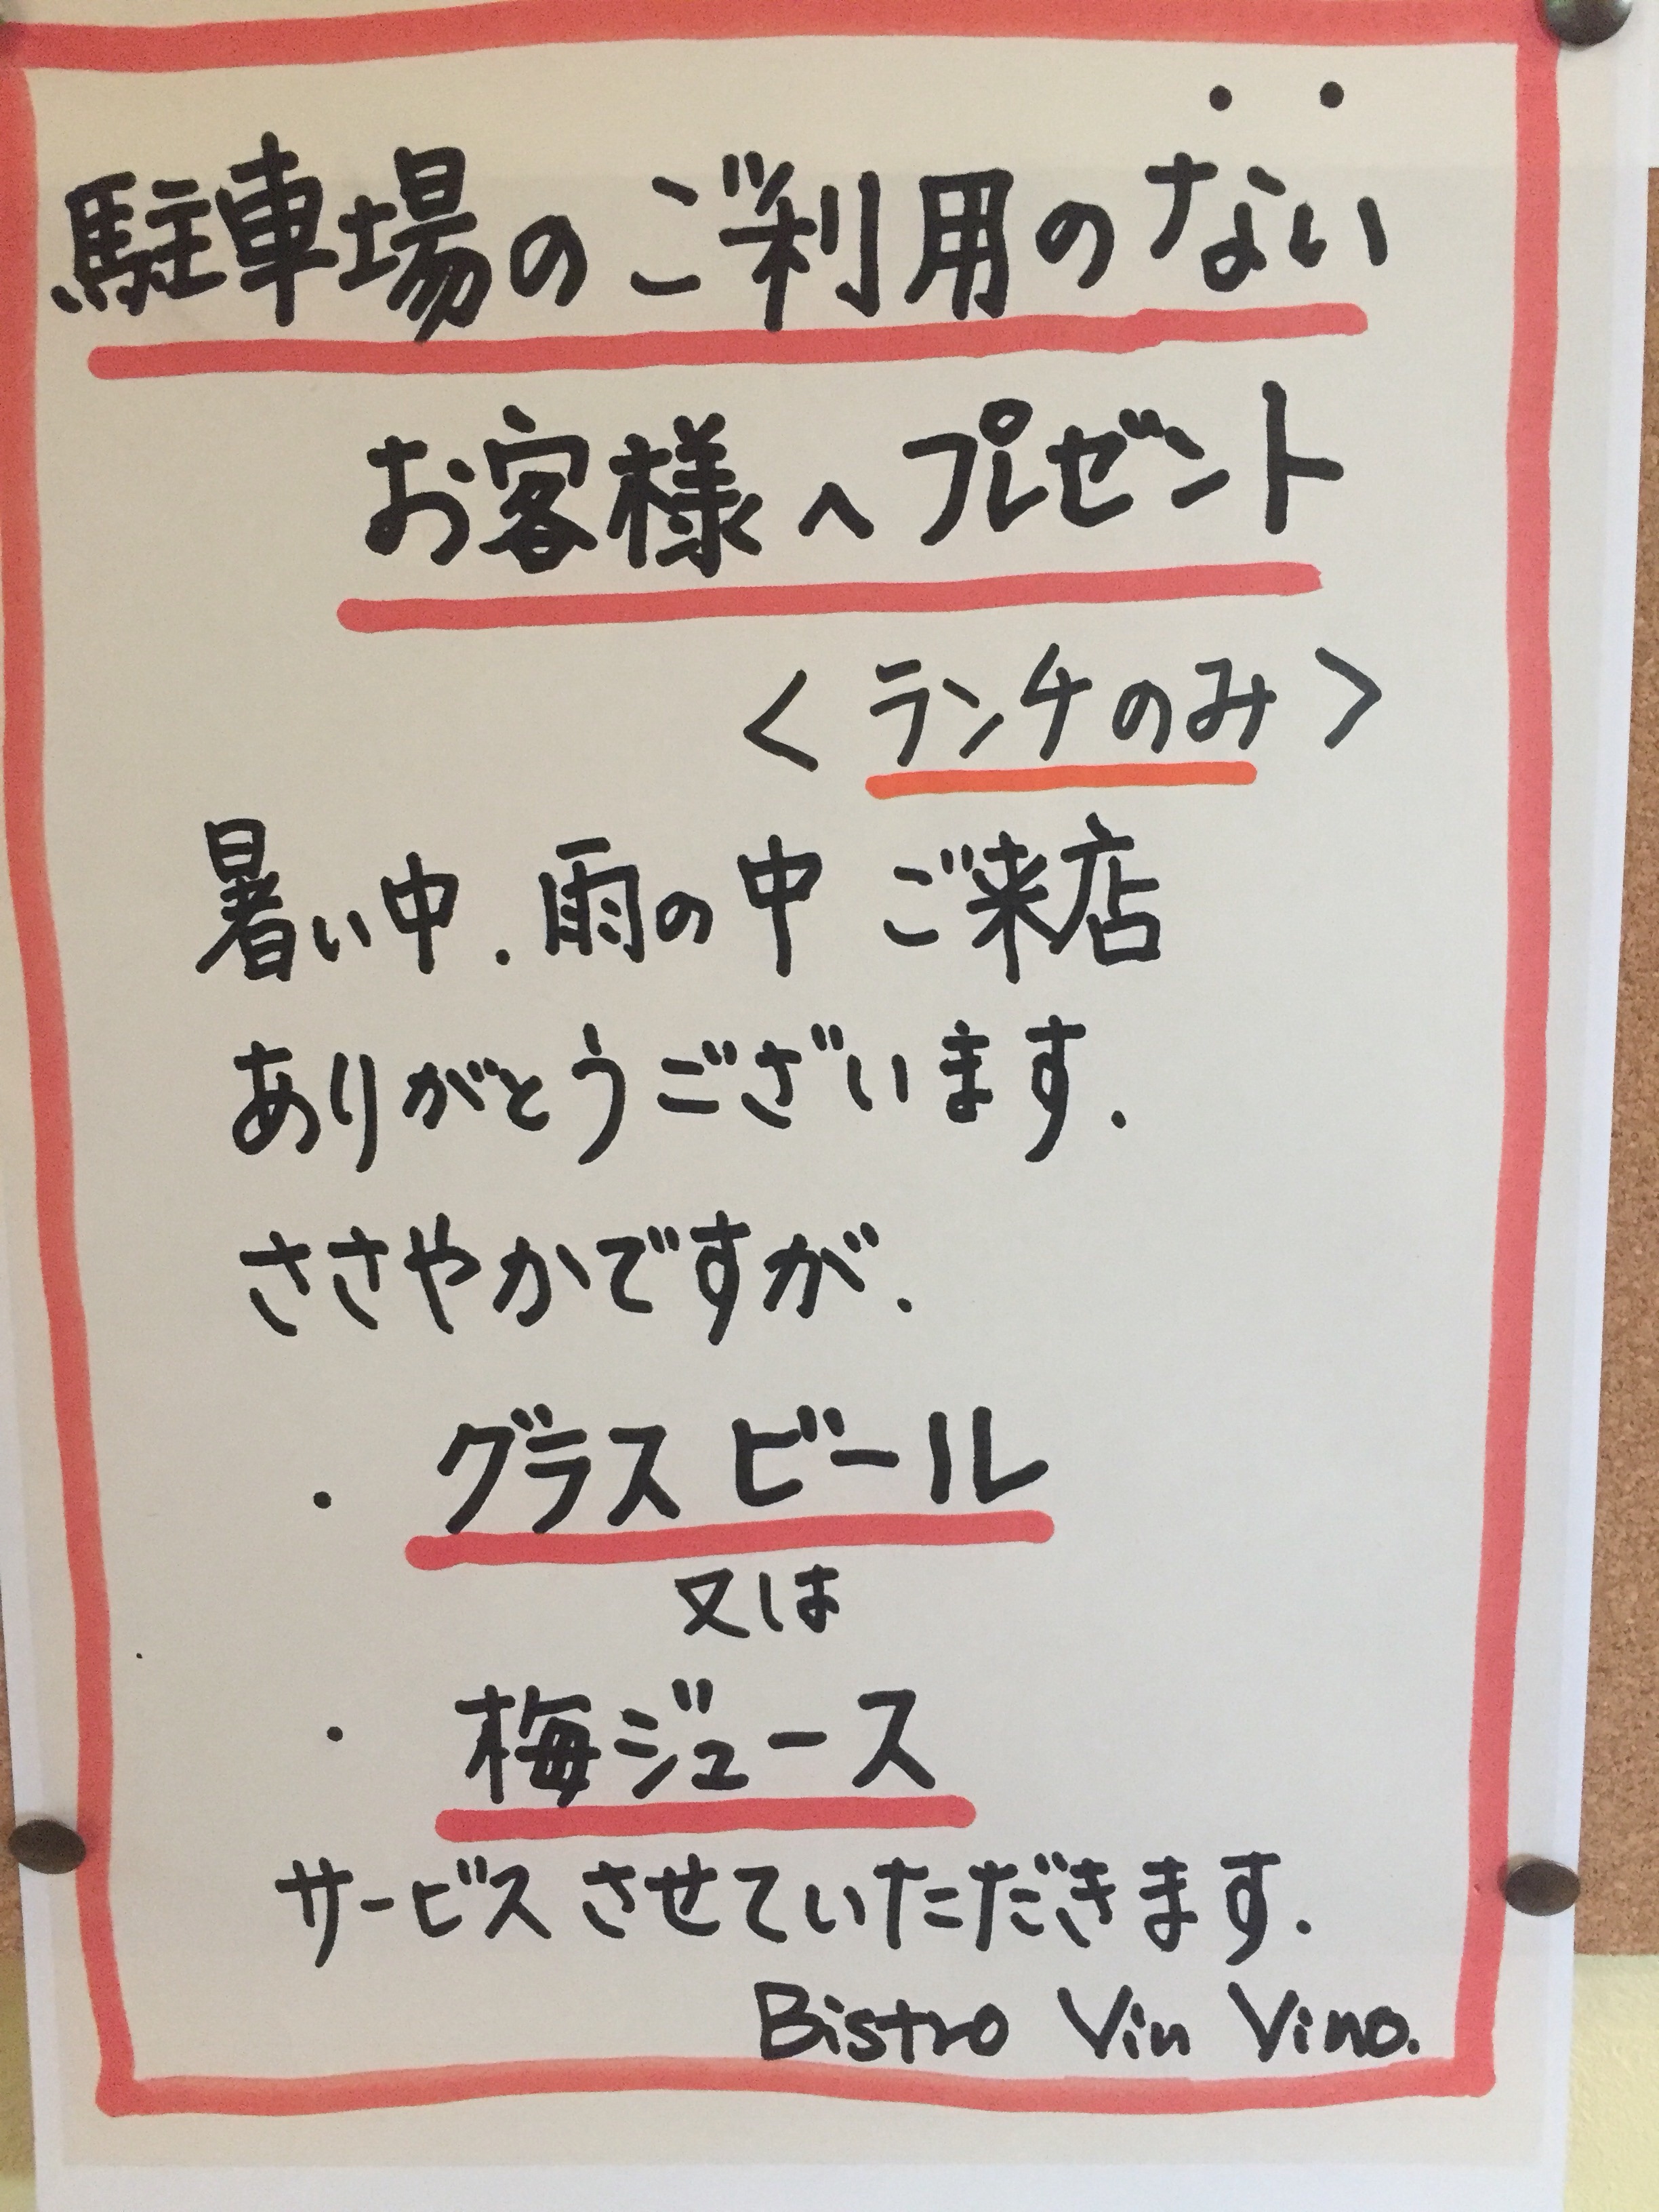 駐車場のご利用のない
お客様へプレゼント
<ランチのみ>
暑い中.雨の中 ご来店
ありがとうございます.
ささやかですが.
・グラスビール
又は
・梅ジュース
サービスさせていただきます.
Bistro Vin Vino.